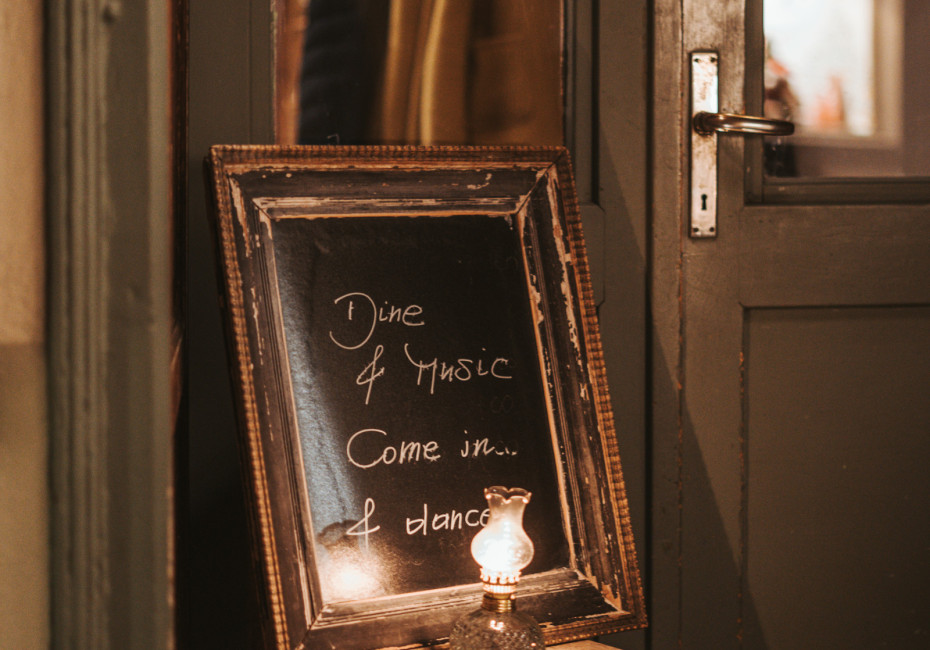 Dine
& Music
Come in...
& dance